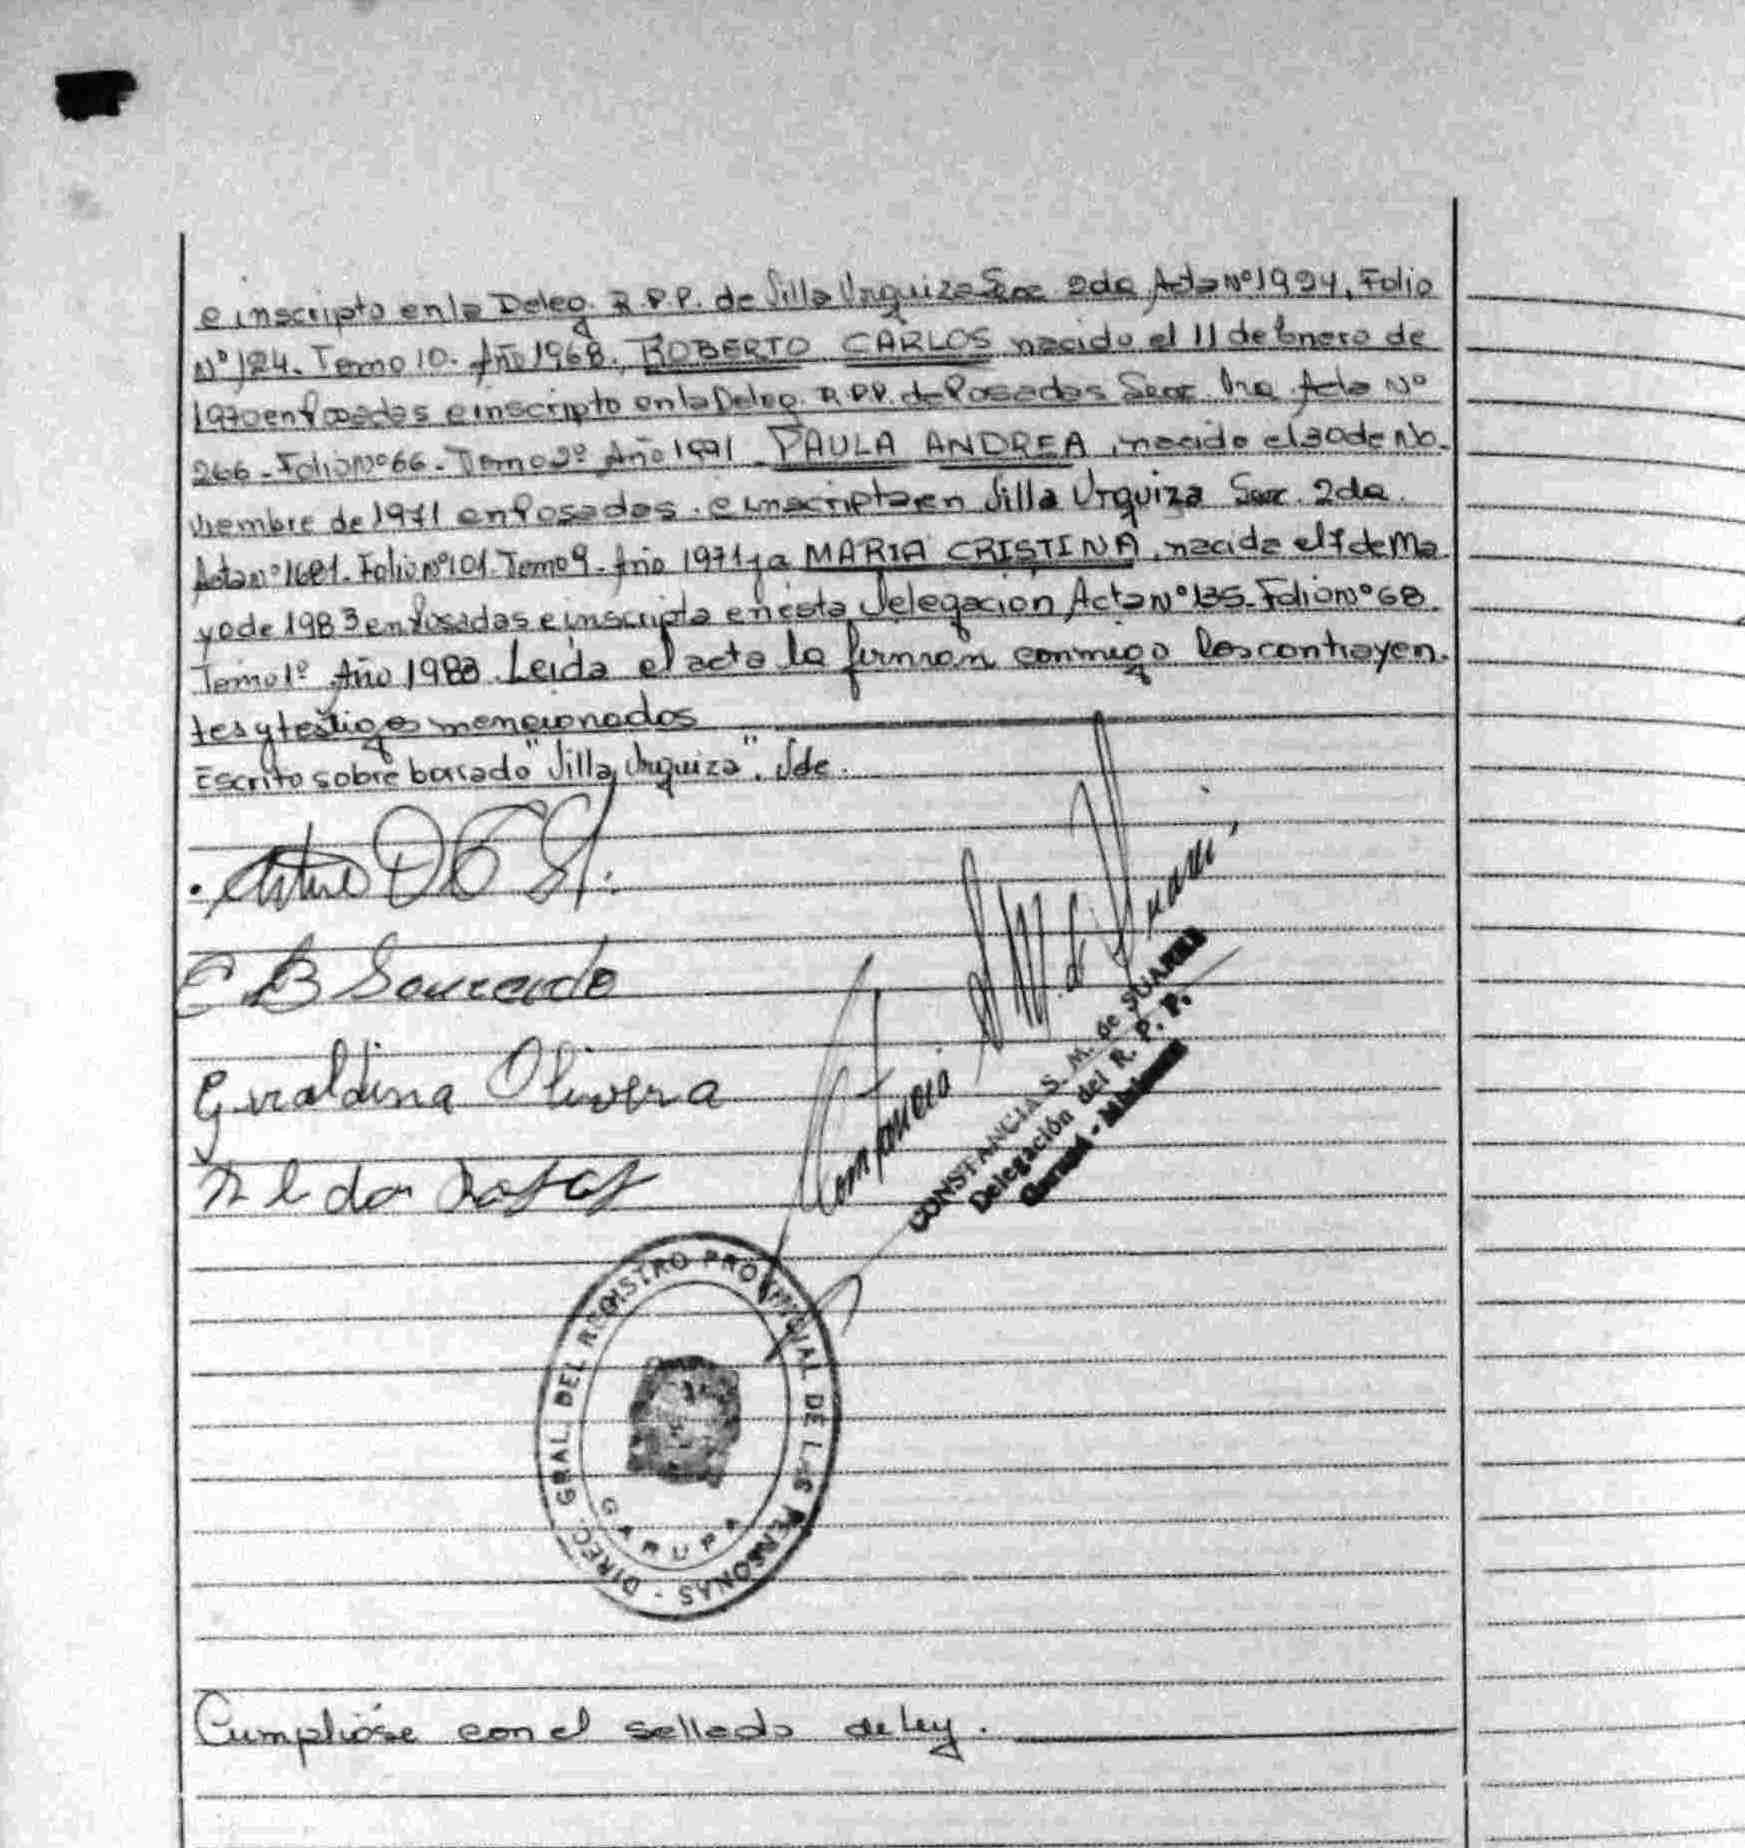 e inscripto en la Deleg. R.P.P. de Villa Urquiza Secc 2da Acta Nº 1924, Folio
Nº 124. Tomo 10. Año 1968, ROBERTO CARLOS nacido el 11 de Enero de
1970 en Posadas e inscripto en la Deleg. R.P.P. de Posadas Secc. 1ra Acta Nº
266 - Folio Nº 66 - Tomo 2º Año 1971 PAULA ANDREA, nacida el 30 de No-
viembre de 1971 en Posadas. e inscripta en Villa Urquiza Secc. 2da.
Acta nº 1681. Folio nº 101. Tomo 9. Año 1971 y a MARIA CRISTINA, nacida el 7 de Ma
yo de 1983 en Posadas e inscripta en esta Delegación Acta Nº 135. Folio nº 68.
Tomo 1º Año 1983. Leída el acta la firman conmigo los contrayen.
tes y testigos mencionados
Escrito sobre borrado "Villa Urquiza". Vde.
Geraldina Olivera
CONSTANCIA S. M. de SUAREZ
Delegación del R. P. P.
Garupá - Misiones
DIREC. GRAL. DEL REGISTRO PROVINCIAL DE LAS PERSONAS -
GARUPA
Cumplióse con el sellado de Ley.